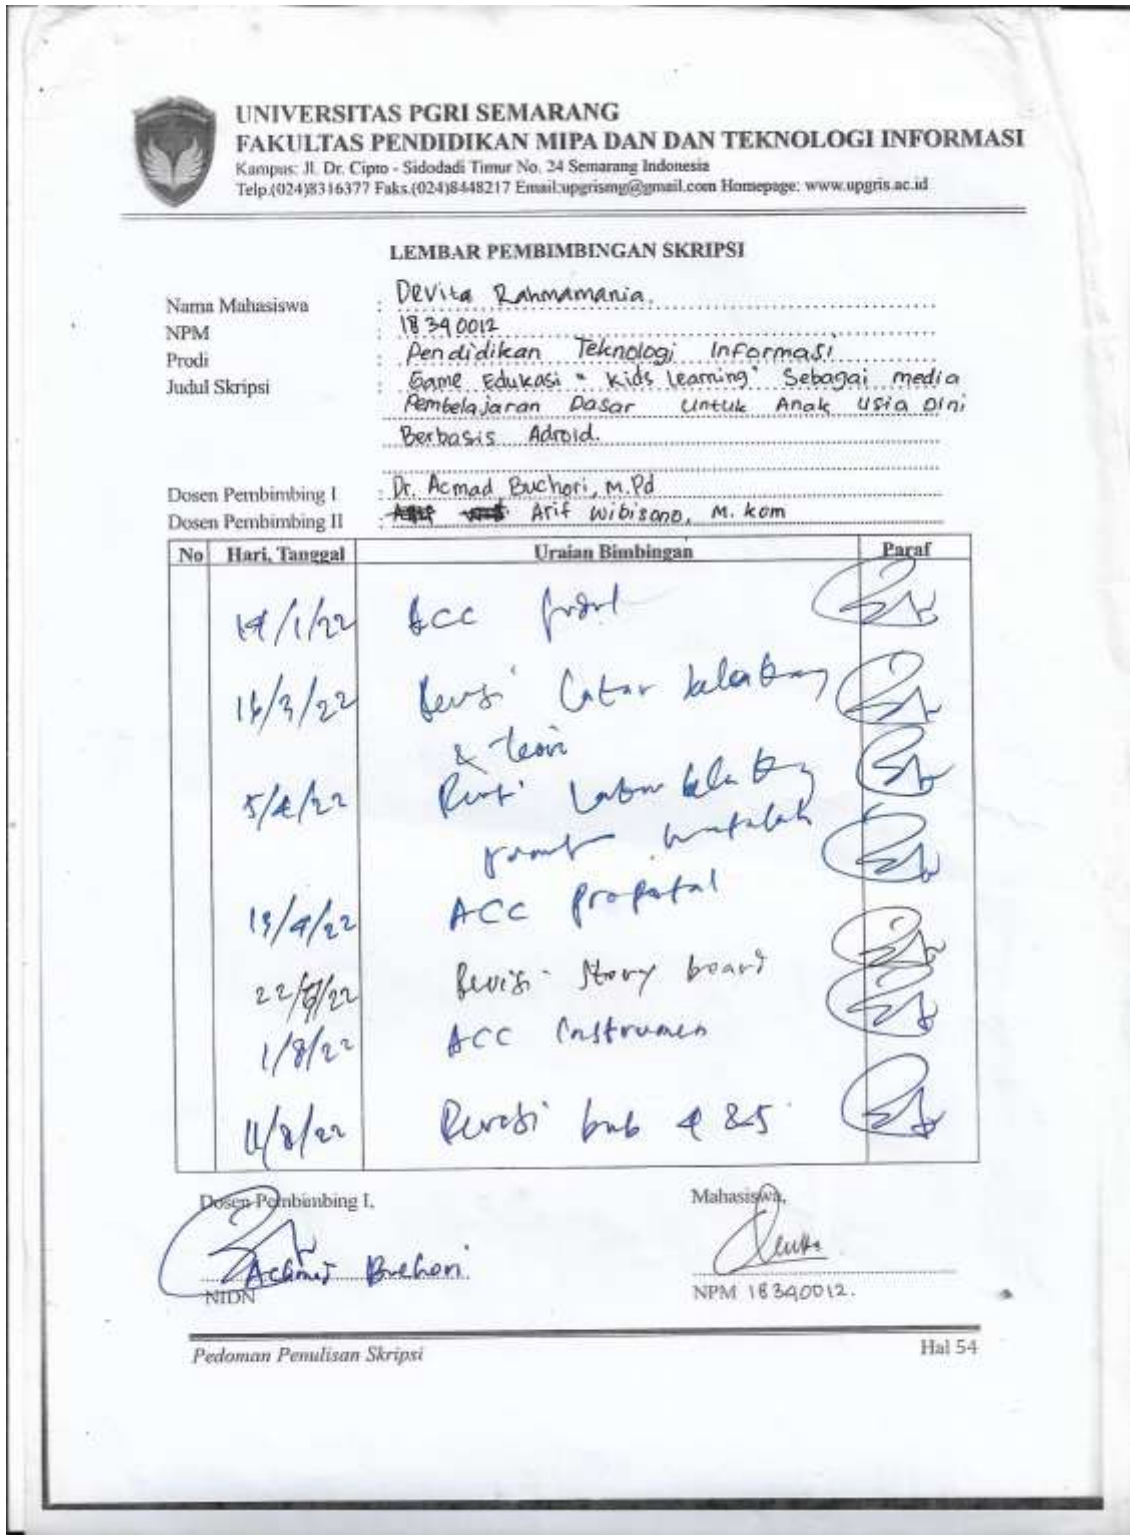 UNIVERSITAS PGRI SEMARANG
FAKULTAS PENDIDIKAN MIPA DAN DAN TEKNOLOGI INFORMASI
Kampus: Jl. Dr. Cipto - Sidodadi Timur No. 24 Semarang Indonesia
Telp.(024)8316377 Faks.(024)8448217 Email:upgrismg@gmail.com Homepage: www.upgris.ac.id
LEMBAR PEMBIMBINGAN SKRIPSI
Nama Mahasiswa : Devita Rahmamania.
NPM : 18340012
Prodi : Pendidikan Teknologi Informasi
Judul Skripsi : Game Edukasi "Kids Learning" Sebagai media
Pembelajaran Dasar Untuk Anak Usia Dini
Berbasis Adroid.
Dosen Pembimbing I : Dr. Acmad Buchori, M.Pd
Dosen Pembimbing II : Arif Wibisono, M. kom
No Hari, Tanggal Uraian Bimbingan Paraf
/1/22 ACC
16/3/22 Revisi Latar belakang
& teori
5/4/22 Revisi Latar belakang
masalah
19/4/22 ACC proposal
22/ /22 Revisi story board
1/8/22 ACC Instrumen
11/8/22 Revisi bab 4 & 5
Dosen Pembimbing I, Mahasiswa,
Achmad Buchori
NIDN NPM 18340012.
Pedoman Penulisan Skripsi Hal 54